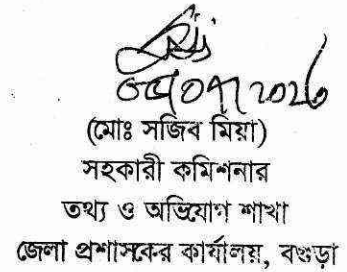 (মোঃ সজিব মিয়া)
সহকারী কমিশনার
তথ্য ও অভিযোগ শাখা
জেলা প্রশাসকের কার্যালয়, বগুড়া